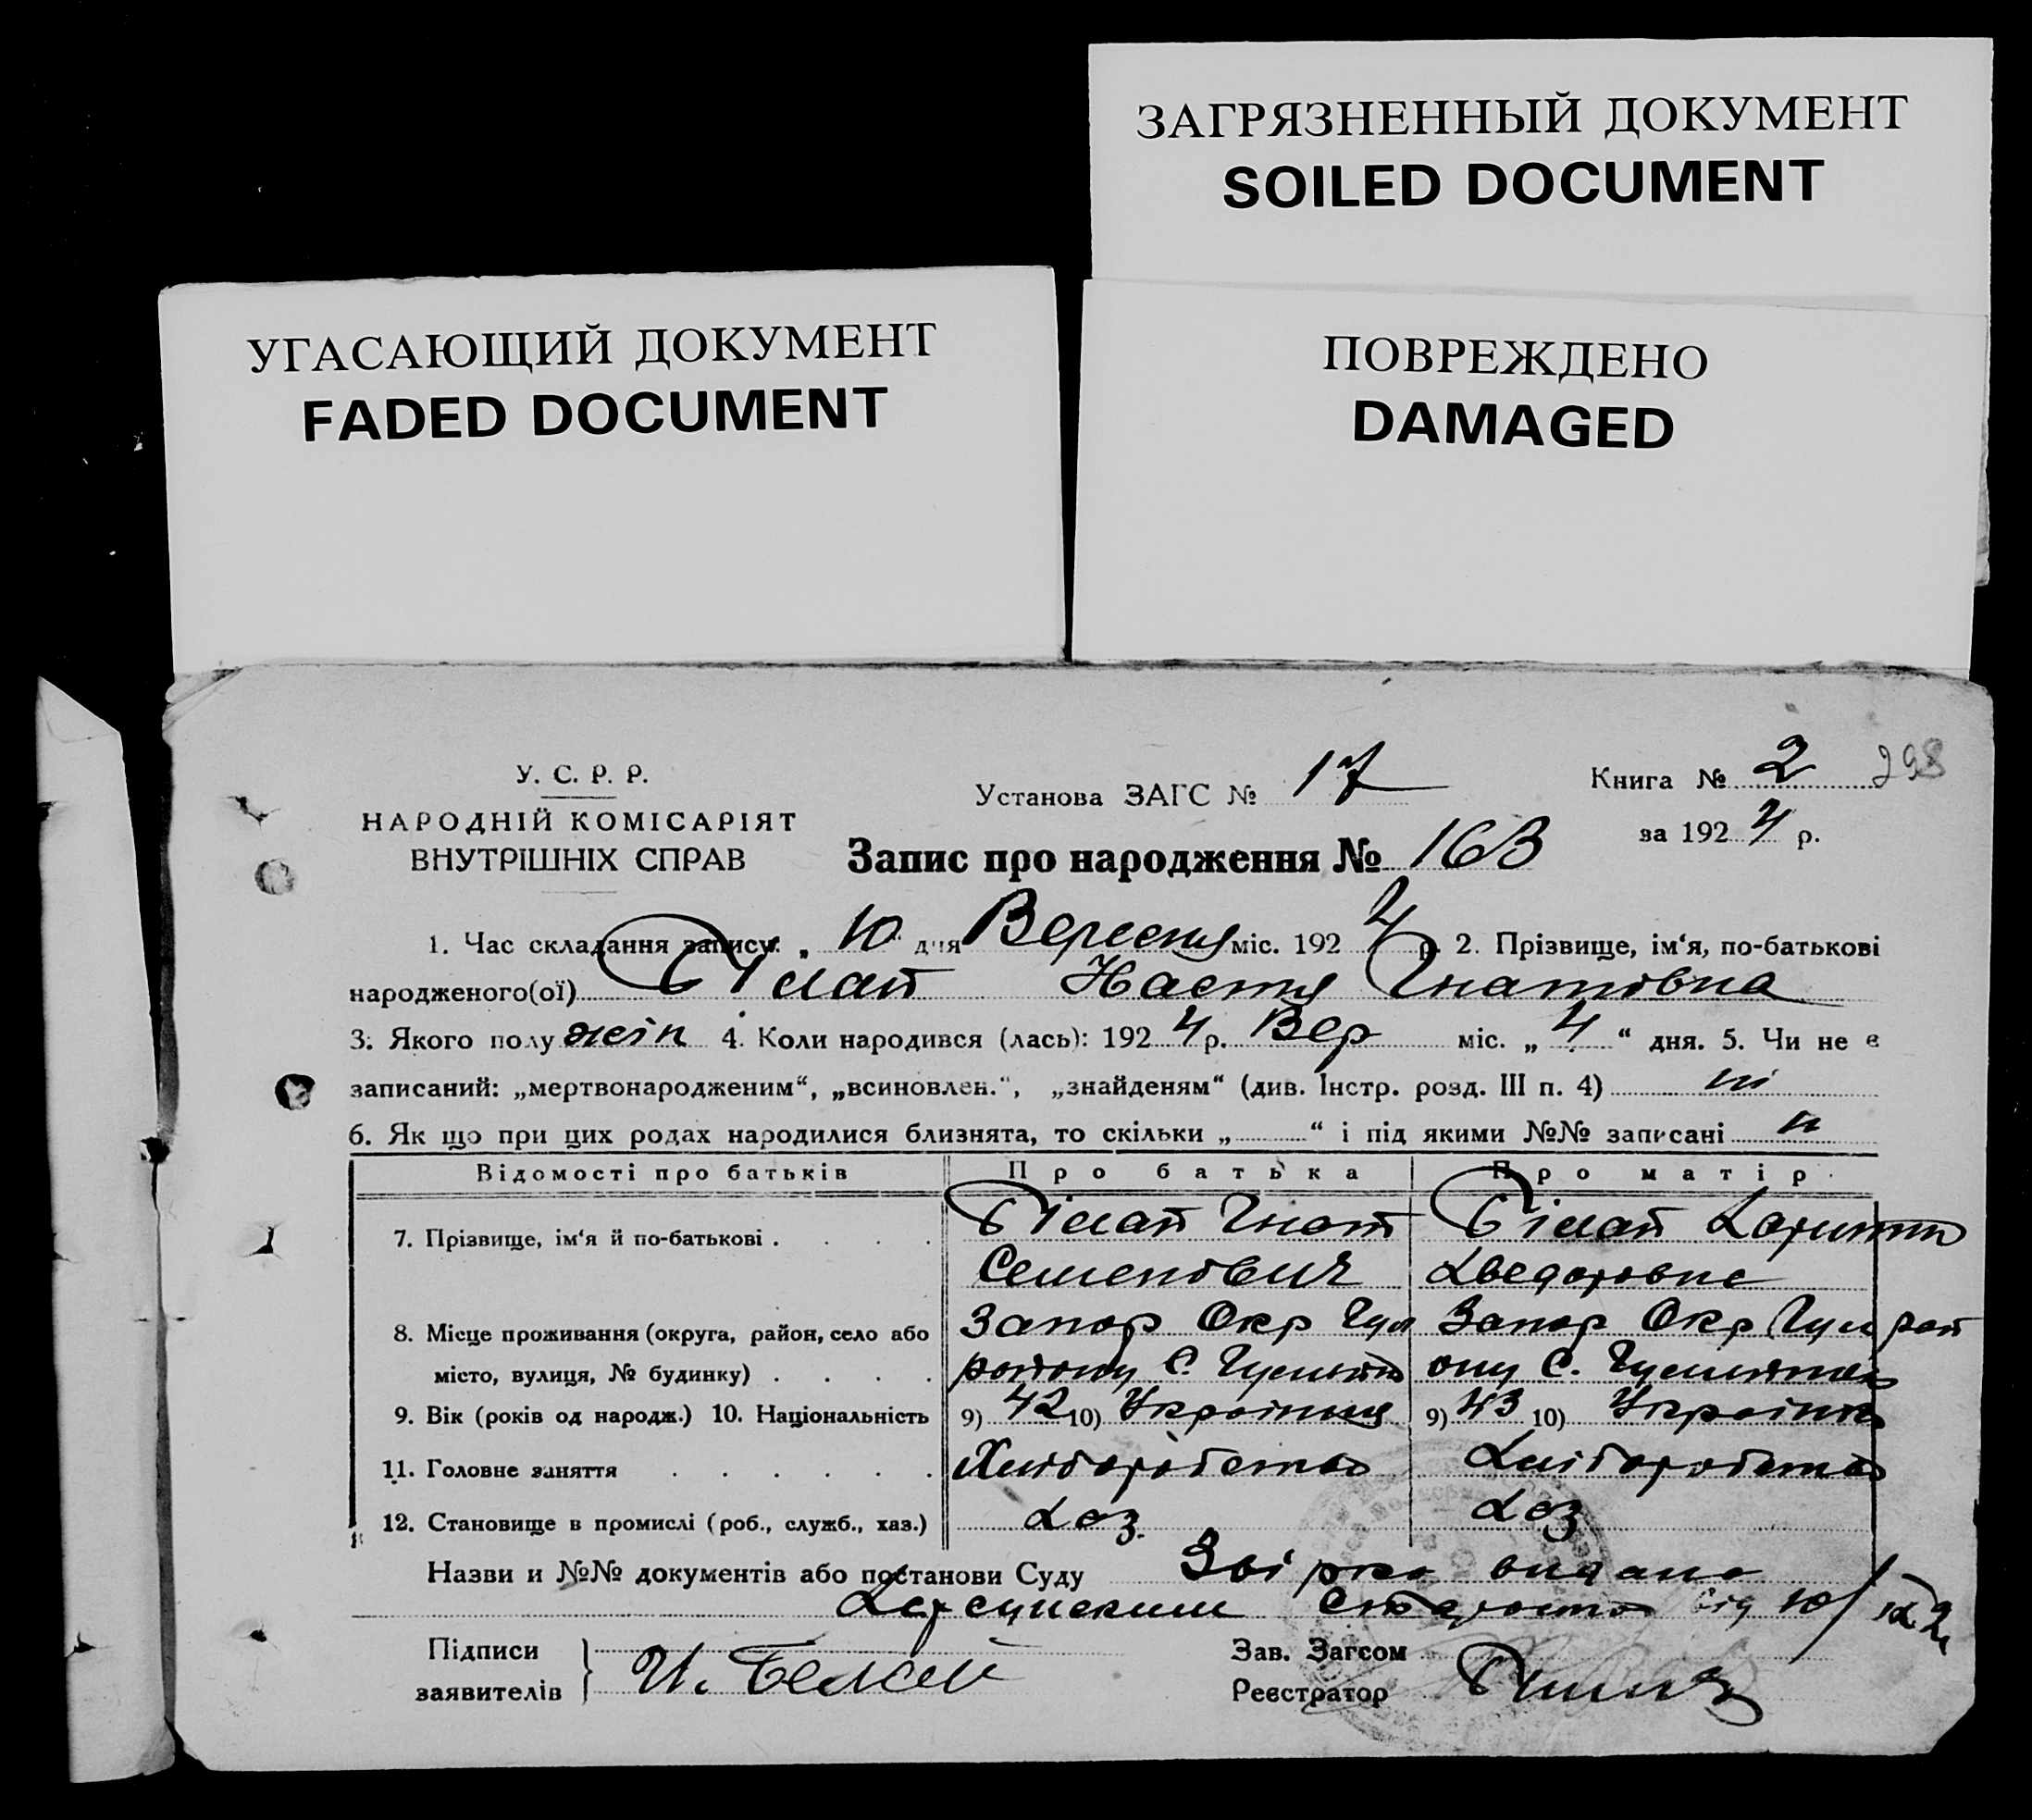 ЗАГРЯЗНЕННЫЙ ДОКУМЕНТ
SOILED DOCUMENT
УГАСАЮЩИЙ ДОКУМЕНТ
FADED DOCUMENT
ПОВРЕЖДЕНО
DAMAGED
У. С. Р. Р.
НАРОДНІЙ КОМІСАРІЯТ
ВНУТРІШНІХ СПРАВ
Установа ЗАГС № 17
Книга № 2 298
за 1924 р.
Запис про народження № 163
1. Час складання запису: „10" дня Вересня міс. 1924 р. 2. Прізвище, ім'я, по-батькові
народженого(ої) Білай Настя Гнатовна
3. Якого полу жін 4. Коли народився (лась): 1924 р. Вер міс. „4" дня. 5. Чи не є
записаний: „мертвонародженим", „всиновлен.", „знайденям" (див. Інстр. розд. III п. 4) ні
6. Як що при цих родах народилися близнята, то скільки „ " і під якими №№ записані н
Відомості про батьків Про батька Про матір
7. Прізвище, ім'я й по-батькові Білай Гнат Білай
Семенович
8. Місце проживання (округа, район, село або Запор Окр Гул Запор Окр Гул рай
місто, вулиця, № будинку) району С. ону С.
9. Вік (років од народж.) 10. Національність 9) 42 10) 9) 43 10) Українка
11. Головне заняття Хліборобство Хліборобство
12. Становище в промислі (роб., служб., хаз.) Хаз. Хаз
Назви и №№ документів або постанови Суду видано
від 10/IX 24
Підписи
заявителів И. Белай
Зав. Загсом
Реєстратор